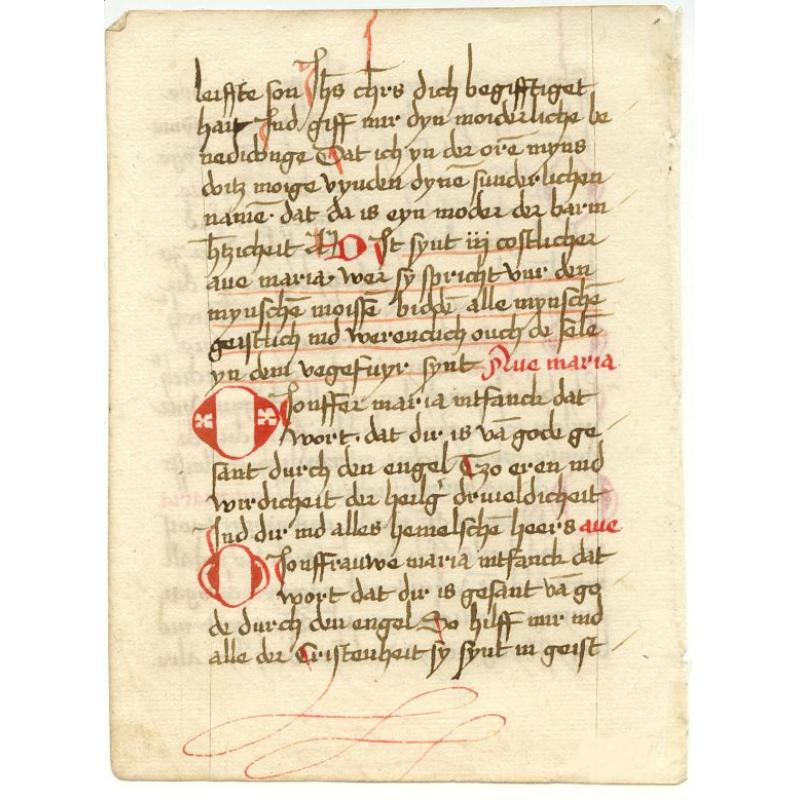 leiffte son Jhs chrs dich begifftiget
hait Ind giff mir dyn moiderliche be
nedidonge Dat ich yn der orē myns
doitz moige vynden dynē sunderlichen
namē. dat da is eyn moder der barm
htzicheit Dit synt iij costlicher
aue maria. wer sy spricht vur den
mynschē moissē bidde alle mynschē
geistlich ind werentlich ouch de selē
yn dem vegefuyr synt Aue maria
O Jouffer maria intfanck dat
wort. dat dir is vā gode ge
sant durch den engel Tzo eren ind
wirdicheit der heilg druieldicheit
Ind dir ind alles hemelschē heers aue
O Jouffrauwe maria intfanck dat
wort dat dir is gesant vā go
de durch den engel So hilff mir ind
alle der Cristenheit sy synt in geist